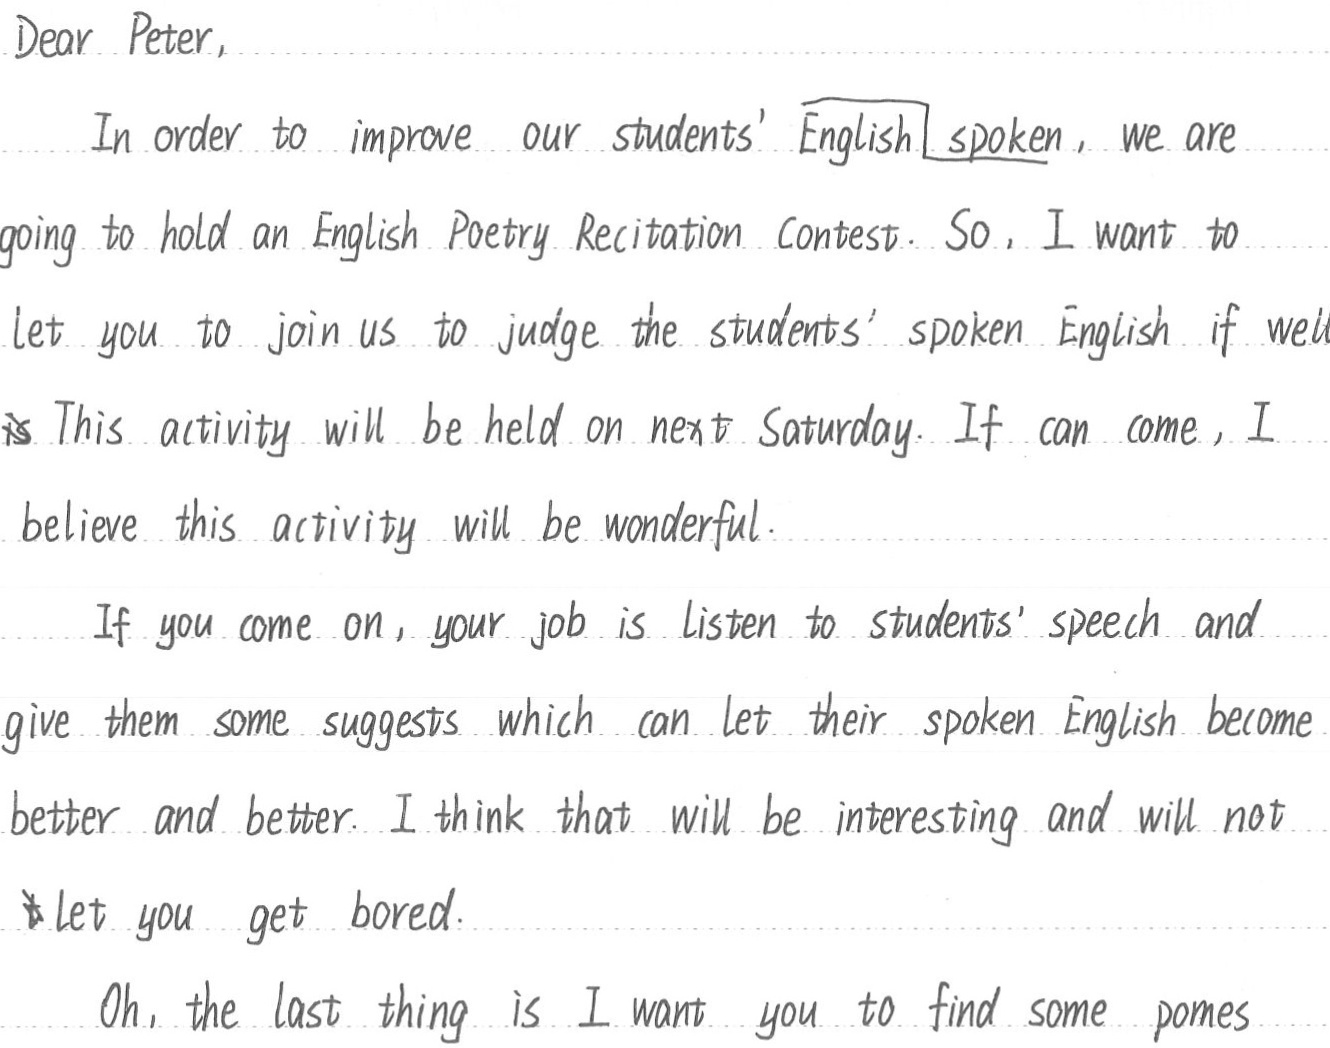 Dear Peter,
In order to improve our students' English spoken, we are
going to hold an English Poetry Recitation Contest. So, I want to
let you to join us to judge the students' spoken English if well
This activity will be held on next Saturday. If can come, I
believe this activity will be wonderful.
If you come on, your job is listen to students' speech and
give them some suggests which can let their spoken English become
better and better. I think that will be interesting and will not
let you get bored.
Oh, the last thing is I want you to find some pomes